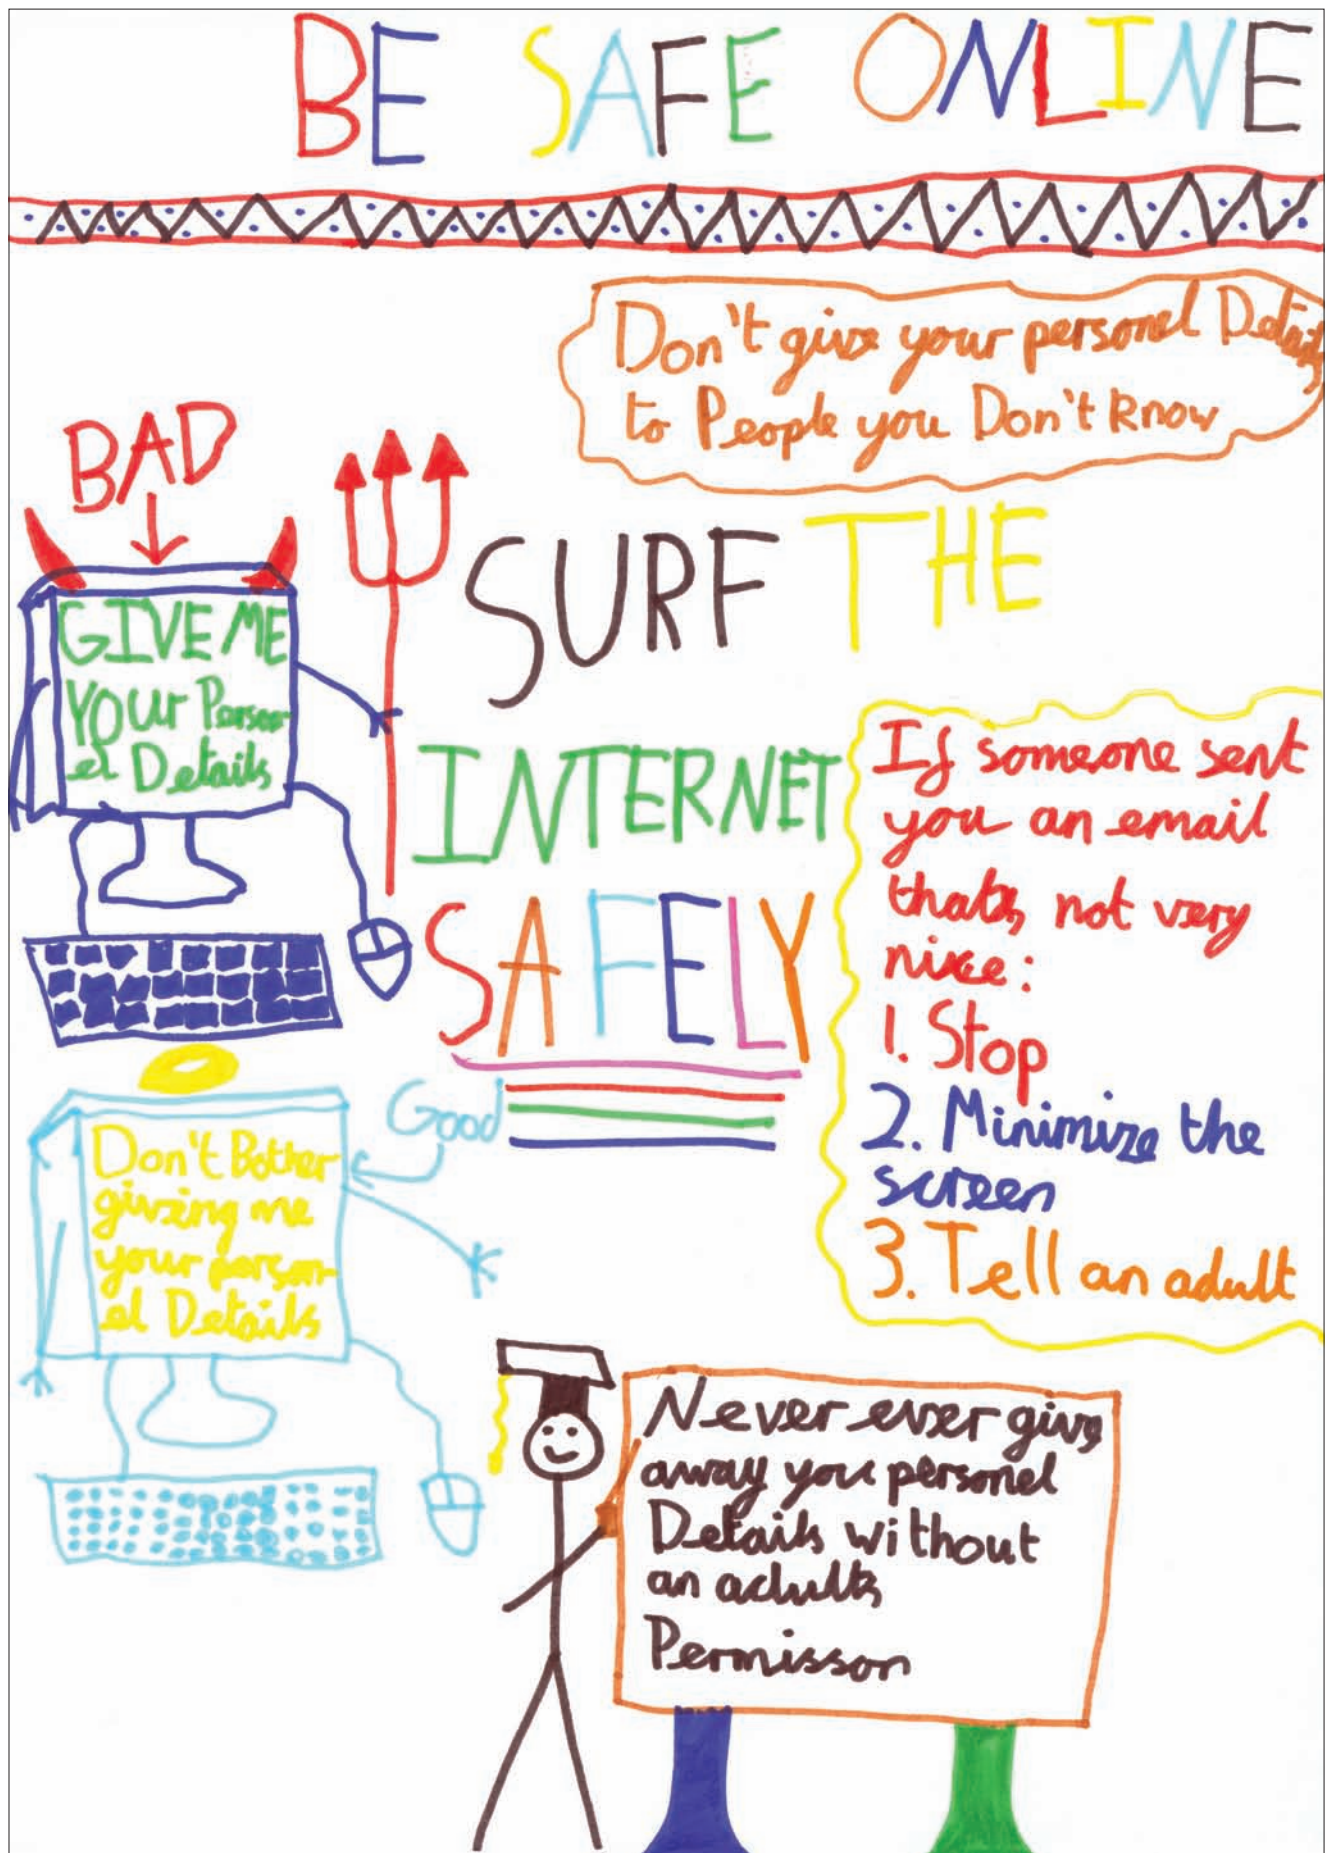 BE SAFE ONLINE
Don't give your personel Details
to People you Don't know
BAD
GIVE ME
YOUr Person-
el Details
SURF THE
INTERNET
SAFELY
If someone sent
you an email
thats, not very
nice:
1. Stop
2. Minimize the
screen
3. Tell an adult
Good
Don't Bother
giveing me
your person-
el Details
Never ever give
away you personel
Details without
an adults
Permisson